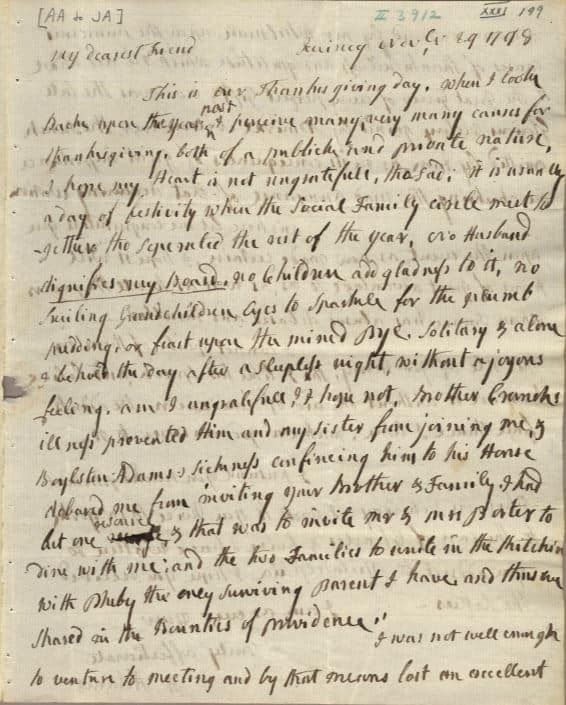 [AA to JA] II 3912 XXXI 199
My dearest Friend Quincy Novbr 29 1798
This is our Thanksgiving day. when I look
Back upon the year past & perceive many, very many causes for
thanksgiving, both of a publick and private nature,
I hope my Heart is not ungratefull, tho sad; it is usually
a day of festivity when the Social Family circle meet to
gether tho seperated the rest of the year. No Husband
dignifies my Board, no Children add gladness to it, no
Smiling Grandchildren Eyes to sparkle for the plumb
pudding, or feast upon the mincd Pye. Solitary & alone
I behold the day after a sleepless night, without a joyous
feeling. am I ungratefull? I hope not. Brother Cranchs
illness prevented Him and my Sister from joining me, &
Boylston Adams's sickness confineing him to his House
debared me from inviting your Brother & Family. I had
but one resource & that was to invite mr & mrs Porter to
dine with me; and the two Families to unite in the Kitchin
with Pheby the only surviving Parent I have, and thus we
shared in the Bounties of providence.
I was not well enough
to venture to meeting and by that means lost an excellent